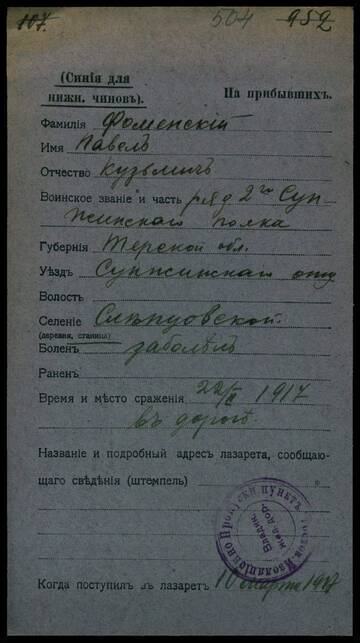 107.
504 952
(Синія для
нижн. чиновъ).
На прибывшихъ.
Фамилія Фоменскій
Имя Павелъ
Отчество Кузьмичъ
Воинское званіе и часть ряд 2го Сун-
женскаго полка
Губернія Терской обл.
Уѣздъ Сунженскаго отд
Волость
Селеніе Слѣпцовской
(деревня, станица)
Боленъ заболѣлъ
Раненъ
Время и мѣсто сраженія 22/II 1917
въ дорогѣ
Названіе и подробный адресъ лазарета, сообщаю-
щаго свѣдѣнія (штемпель)
Изоляціонно Пропускн пунктъ Ростов
Владик.
жел. дор.
Когда поступилъ въ лазаретъ 10 марта 1917